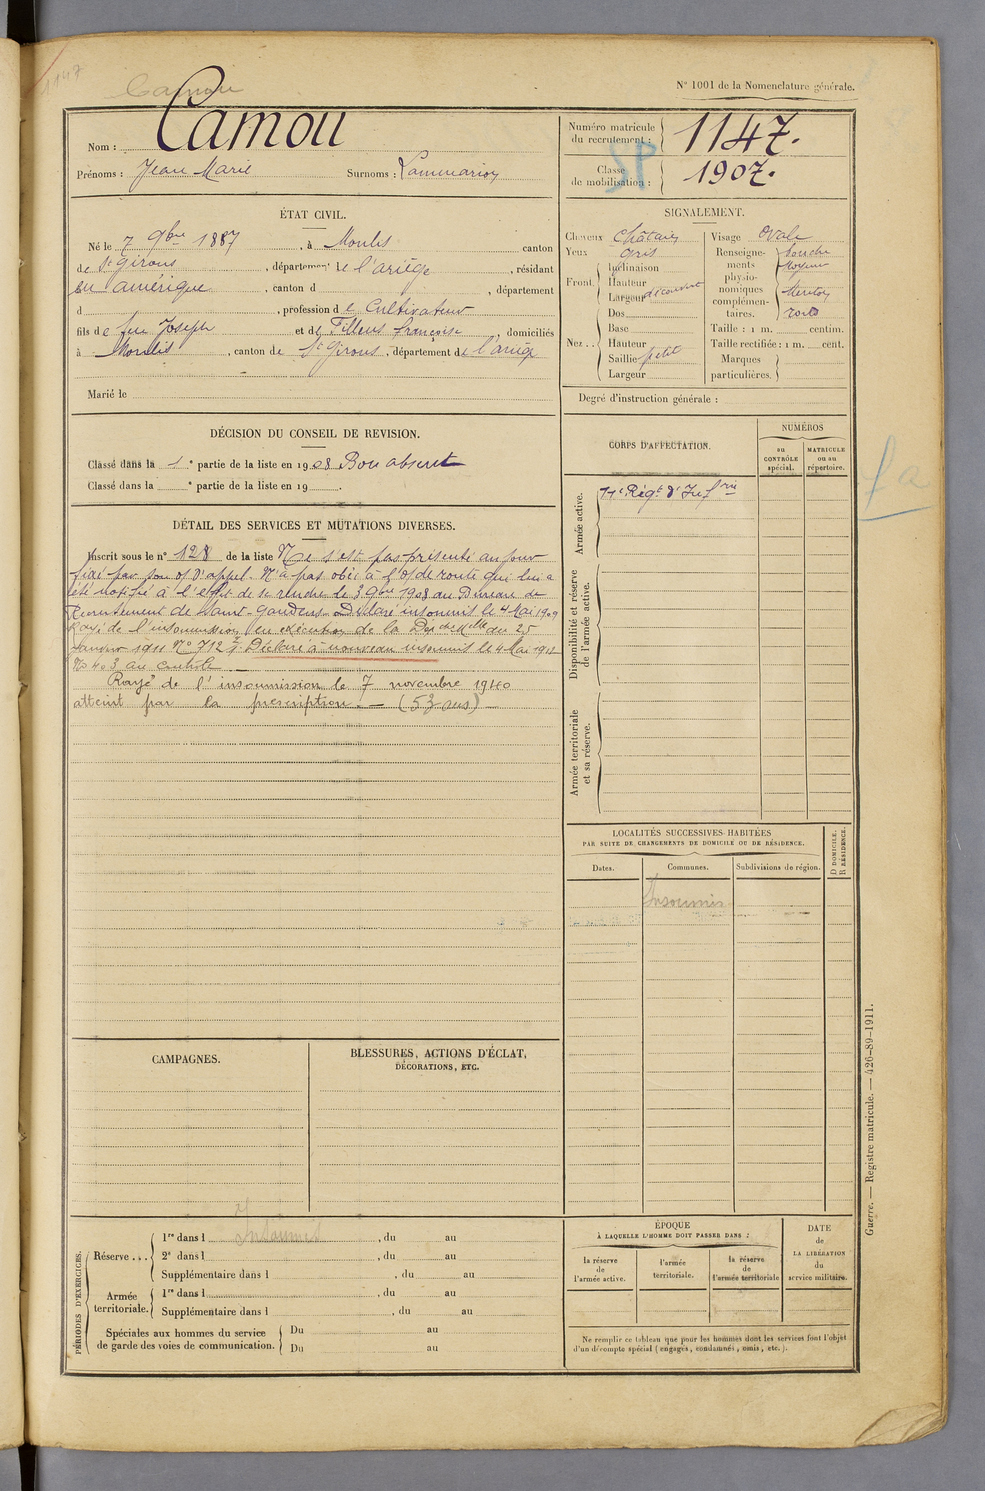 1147
Camou
N° 1001 de la Nomenclature générale.
Nom : Camou
Prénoms : Jean Marie Surnoms : Lammarion
Numéro matricule du recrutement : 1147.
Classe de mobilisation : 1907.
SP
ÉTAT CIVIL.
Né le 7 9bre 1887, à Moulis canton
de St Girons, département de l'ariège, résidant
en amérique, canton d , département
d , profession de Cultivateur
fils de feu Joseph et de Fillens françoise, domiciliés
à Moulis, canton de St Girons, département de l'ariège
Marié le
SIGNALEMENT.
Cheveux Châtains
Yeux gris
Front. Inclinaison
Hauteur
Largeur découvert
Nez.. Dos
Base
Hauteur
Saillie petit
Largeur
Visage Ovale
Renseignements physionomiques complémentaires. bouche moyenne menton rond
Taille : 1 m. centim.
Taille rectifiée : 1 m. cent.
Marques particulières.
Degré d'instruction générale :
DÉCISION DU CONSEIL DE REVISION.
Classé dans la 1e partie de la liste en 1908 Bon absent
Classé dans la e partie de la liste en 19 .
DÉTAIL DES SERVICES ET MUTATIONS DIVERSES.
Inscrit sous le n° 128 de la liste Ne s'est pas présenté au jour
fixé par son o/ d'appel. N'a pas obéi à l'o/ de route qui lui a
été notifié à l'effet de se rendre le 3 9bre 1908 au Bureau de
Recrutement de Saint-Gaudens. Déclaré insoumis le 4 Mai 1909
Rayé de l'insoumission en exécution de la Dépche Mlle du 25
Janvier 1911 No 712 Déclaré à nouveau insoumis le 4 Mai 1912
No 403 au contrôle
Rayé de l'insoumission le 7 novembre 1940
atteint par la prescription. — (53 ans) —
CORPS D'AFFECTATION.
NUMÉROS
au CONTRÔLE spécial.
MATRICULE ou au répertoire.
Armée active.
Régt d'Infrie
Disponibilité et réserve de l'armée active.
Armée territoriale et sa réserve.
fa
LOCALITÉS SUCCESSIVES HABITÉES
PAR SUITE DE CHANGEMENTS DE DOMICILE OU DE RÉSIDENCE.
Dates. Communes. Subdivisions de région. D DOMICILE. R RÉSIDENCE.
Insoumis
CAMPAGNES.
BLESSURES, ACTIONS D'ÉCLAT,
DÉCORATIONS, ETC.
PÉRIODES D'EXERCICES.
Réserve... 1re dans l Insoumis , du au
2e dans l , du au
Supplémentaire dans l , du au
Armée territoriale. 1re dans l , du au
Supplémentaire dans l , du au
Spéciales aux hommes du service de garde des voies de communication. Du au
Du au
ÉPOQUE
À LAQUELLE L'HOMME DOIT PASSER DANS :
la réserve de l'armée active.
l'armée territoriale.
la réserve de l'armée territoriale
DATE DE LA LIBÉRATION du service militaire.
Ne remplir ce tableau que pour les hommes dont les services font l'objet
d'un décompte spécial (engagés, condamnés, omis, etc.).
Guerre. — Registre matricule. — 426-89-1911.